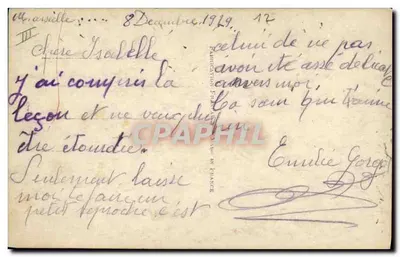 Marseille
8 Decembre 1929
III
chère Isabelle
j'ai compris la
leçon et ne veux plus
être étourdie.
Seulement laisse
moi te faire un
petit reproche c'est
12
celui de ne pas
avoir été assé délicate
envers moi.
Ta sœur qui t'aime
Emilie Gorge
CPAPHIL